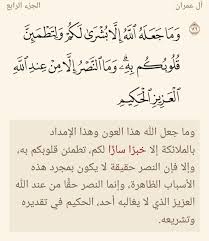 آل عمران
الجزء الرابع
١٢٦ وَمَا جَعَلَهُ ٱللَّهُ إِلَّا بُشْرَىٰ لَكُمْ وَلِتَطْمَئِنَّ
قُلُوبُكُم بِهِۦ ۗ وَمَا ٱلنَّصْرُ إِلَّا مِنْ عِندِ ٱللَّهِ
ٱلْعَزِيزِ ٱلْحَكِيمِ
وما جعل الله هذا العون وهذا الإمداد
بالملائكة إلا خبرًا سارًا لكم، تطمئن قلوبكم به،
وإلا فإن النصر حقيقة لا يكون بمجرد هذه
الأسباب الظاهرة، وإنما النصر حقًا من عند الله
العزيز الذي لا يغالبه أحد، الحكيم في تقديره
وتشريعه.